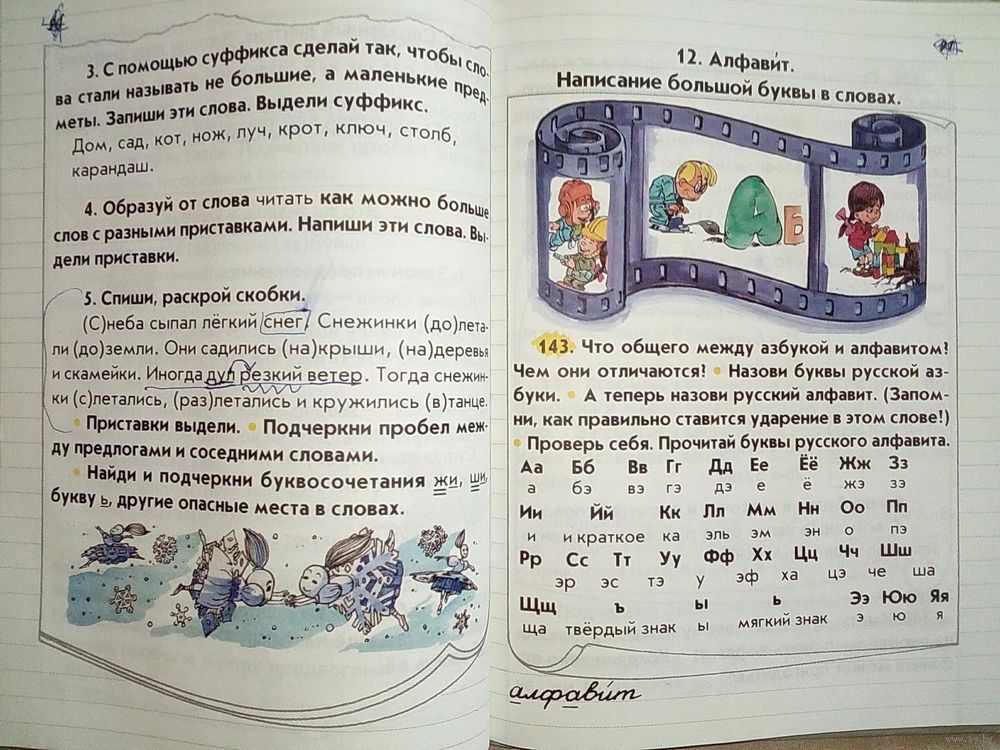 3. С помощью суффикса сделай так, чтобы сло-
ва стали называть не большие, а маленькие пред-
меты. Запиши эти слова. Выдели суффикс.
Дом, сад, кот, нож, луч, крот, ключ, столб,
карандаш.
4. Образуй от слова читать как можно больше
слов с разными приставками. Напиши эти слова. Вы-
дели приставки.
5. Спиши, раскрой скобки.
(С)неба сыпал лёгкий снег. Снежинки (до)лета-
ли (до)земли. Они садились (на)крыши, (на)деревья
и скамейки. Иногда дул резкий ветер. Тогда снежин-
ки (с)летались, (раз)летались и кружились (в)танце.
• Приставки выдели. • Подчеркни пробел меж-
ду предлогами и соседними словами.
• Найди и подчеркни буквосочетания жи, ши,
букву ь, другие опасные места в словах.
12. Алфави́т.
Написание большой буквы в словах.
А Б
143. Что общего между азбукой и алфавитом?
Чем они отличаются? • Назови буквы русской аз-
буки. • А теперь назови русский алфавит. (Запом-
ни, как правильно ставится ударение в этом слове!)
• Проверь себя. Прочитай буквы русского алфавита.
Аа Бб Вв Гг Дд Ее Ёё Жж Зз
а бэ вэ гэ дэ е ё жэ зэ
Ии Йй Кк Лл Мм Нн Оо Пп
и и краткое ка эль эм эн о пэ
Рр Сс Тт Уу Фф Хх Цц Чч Шш
эр эс тэ у эф ха цэ че ша
Щщ ъ ы ь Ээ Юю Яя
ща твёрдый знак ы мягкий знак э ю я
алфави́т
www.ay.by